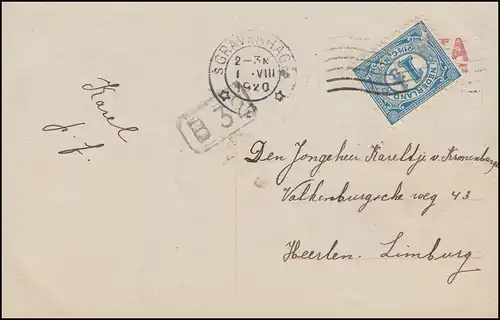 'SGRAVENHAGE
2-3N
1 .VIII
1920
NEDERLAND
1
Karel
p. f.
Den Jongeheer Kareltje v. Kronenburg
Valkenburgsche weg 43
Heerlen. Limburg